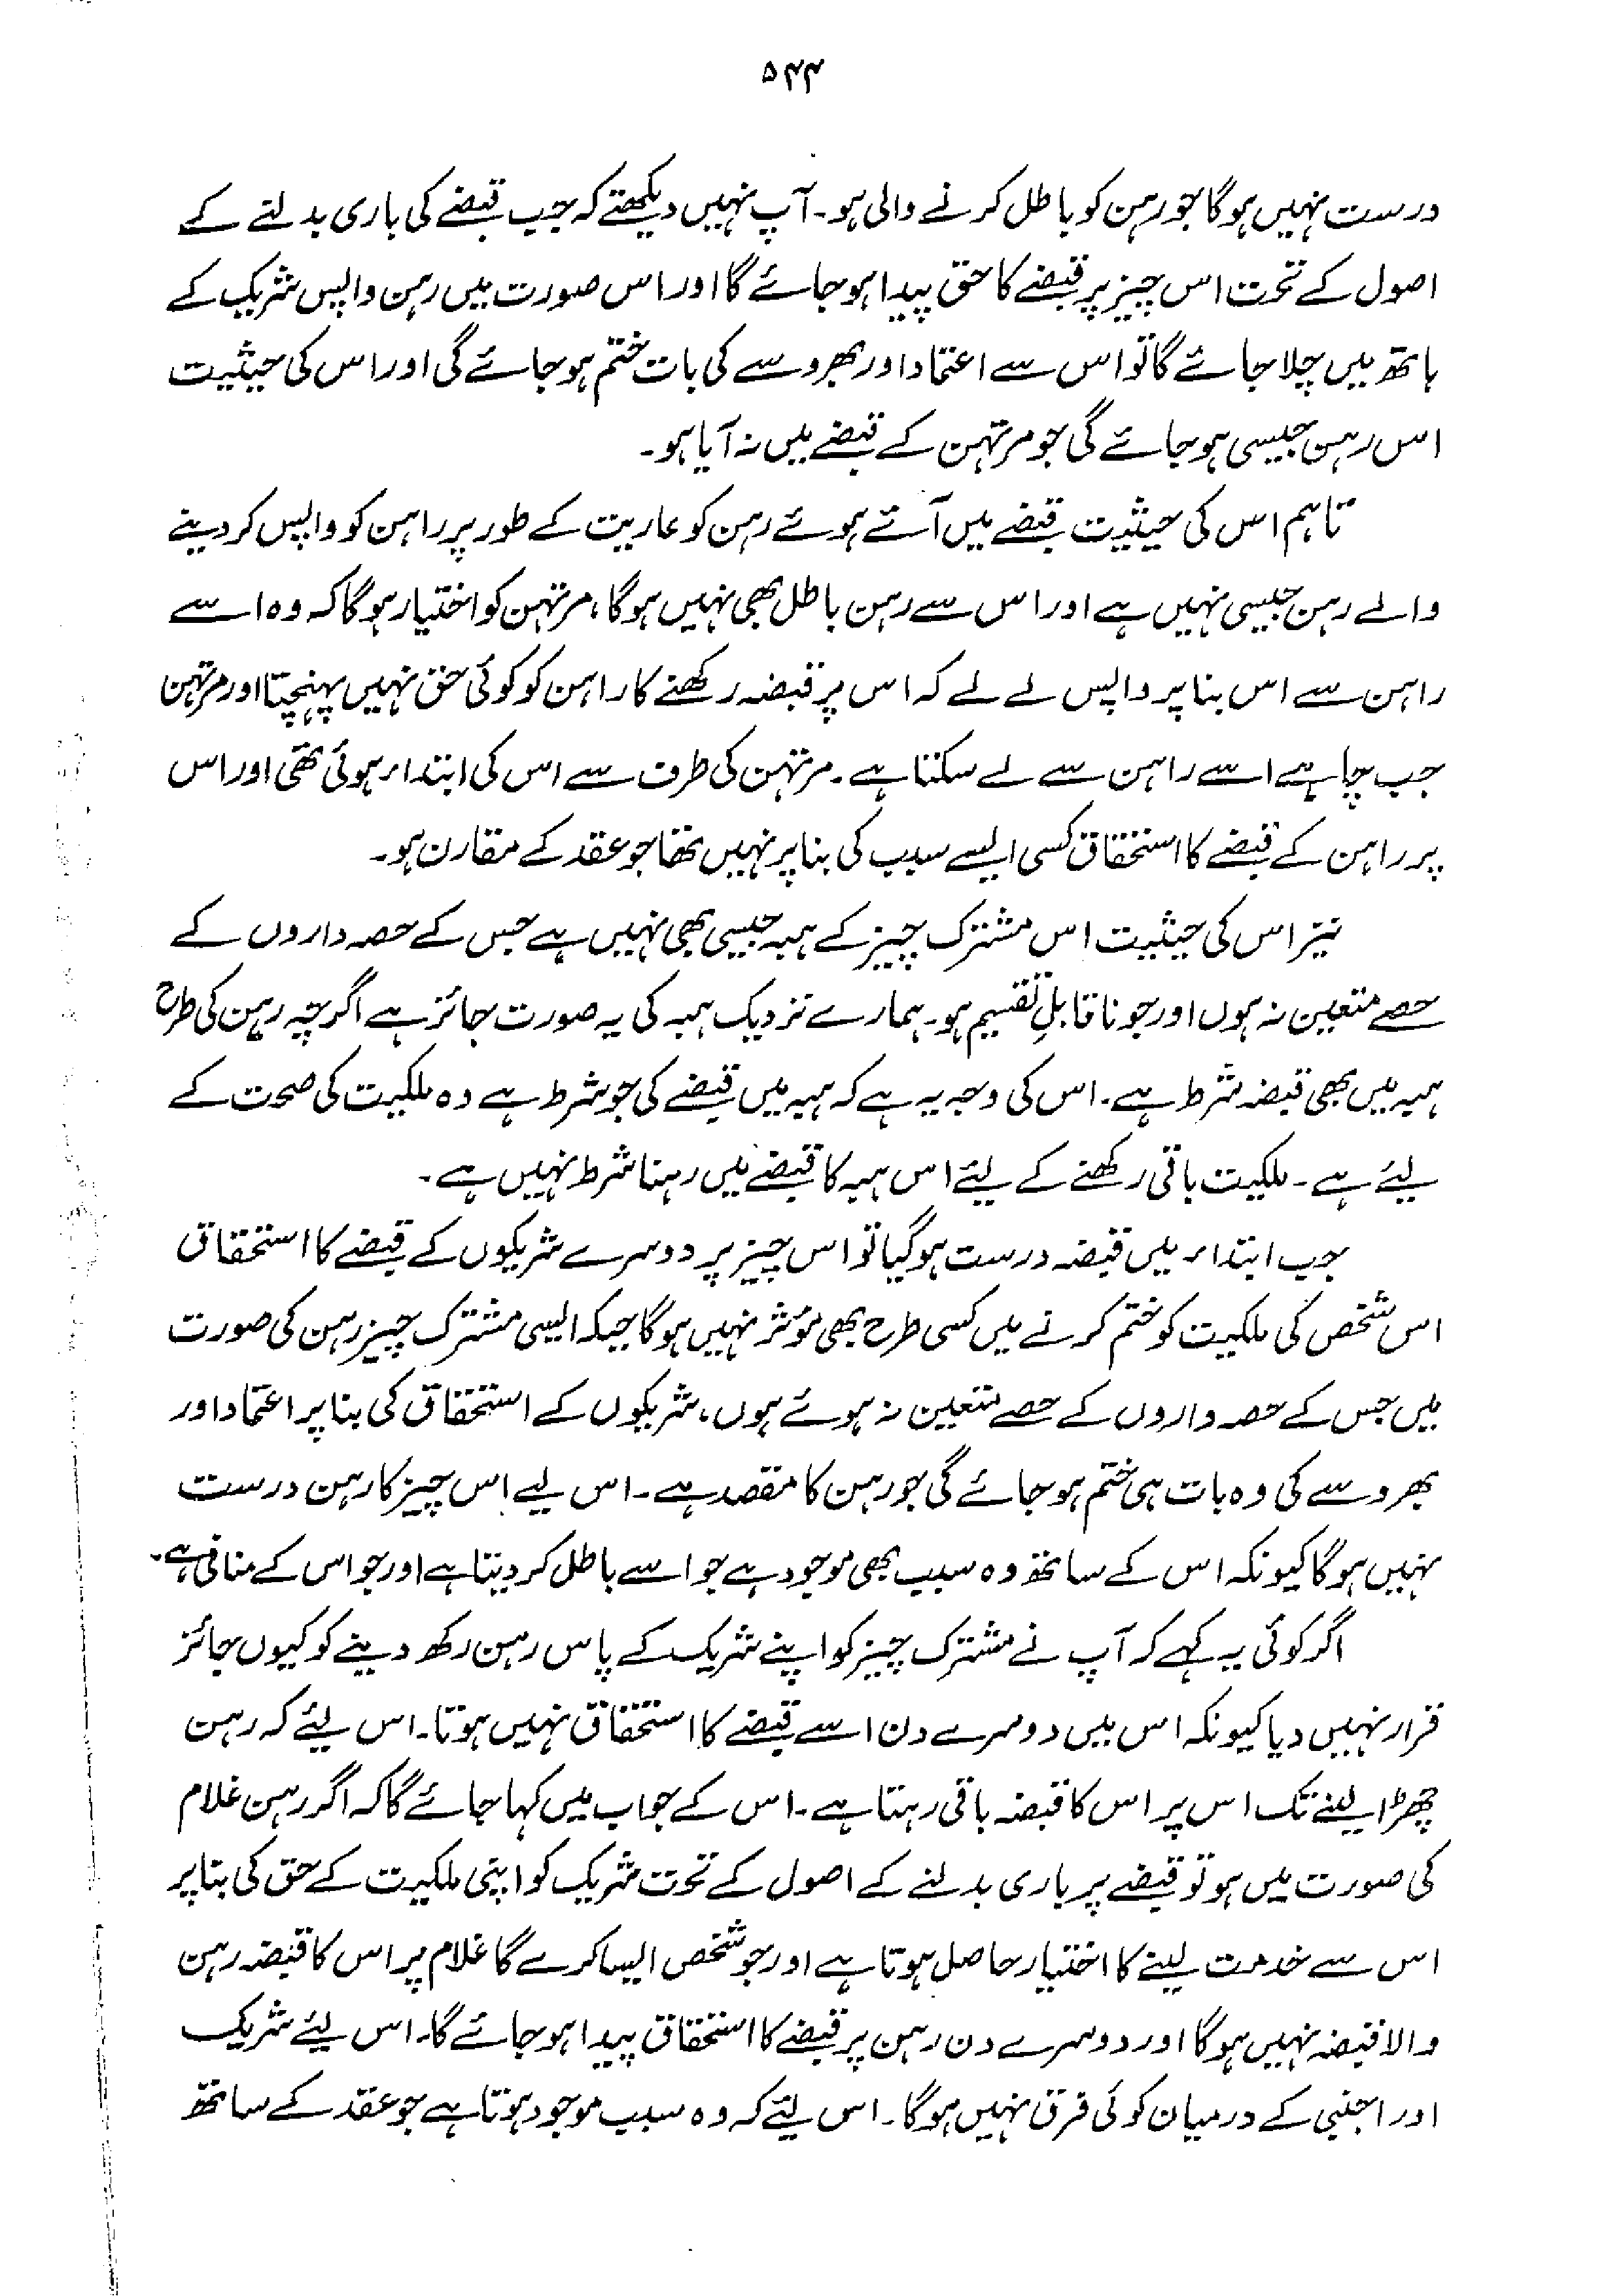 ۵۴۴
درست نہیں ہوگا جو رہن کو باطل کرنے والی ہو۔ آپ نہیں دیکھتے کہ جب قبضے کی باری بدلتے کے
اصول کے تحت اس چیز پر قبضے کا حق پیدا ہو جائے گا اور اس صورت میں رہن واپس شریک کے
ہاتھ میں چلا جائے گا تو اس سے اعتماد اور بھروسے کی بات ختم ہو جائے گی اور اس کی حیثیت
اس رہن جیسی ہو جائے گی جو مرتہن کے قبضے میں نہ آیا ہو۔
تاہم اس کی حیثیت قبضے میں آئے ہوئے رہن کو عاریت کے طور پر راہن کو واپس کر دینے
والے رہن جیسی نہیں ہے اور اس سے رہن باطل بھی نہیں ہوگا، مرتہن کو اختیار ہوگا کہ وہ اسے
راہن سے اس بنا پر واپس لے لے کہ اس پر قبضہ رکھنے کا راہن کو کوئی حق نہیں پہنچتا اور مرتہن
جب چاہے اسے راہن سے لے سکتا ہے۔ مرتہن کی طرف سے اس کی ابتداء ہوئی تھی اور اس
پر راہن کے قبضے کا استحقاق کسی ایسے سبب کی بنا پر نہیں تھا جو عقد کے مقارن ہو۔
نیز اس کی حیثیت اس مشترک چیز کے ہبہ جیسی بھی نہیں ہے جس کے حصہ داروں کے
حصے متعین نہ ہوں اور جو ناقابلِ تقسیم ہو۔ ہمارے نزدیک ہبہ کی یہ صورت جائز ہے اگرچہ رہن کی طرح
ہبہ میں بھی قبضہ شرط ہے۔ اس کی وجہ یہ ہے کہ ہبہ میں قبضے کی جو شرط ہے وہ ملکیت کی صحت کے
لیئے ہے۔ ملکیت باقی رکھنے کے لیئے اس ہبہ کا قبضے میں رہنا شرط نہیں ہے۔
جب ابتداء میں قبضہ درست ہو گیا تو اس چیز پر دوسرے شریکوں کے قبضے کا استحقاق
اس شخص کی ملکیت کو ختم کرنے میں کسی طرح بھی مؤثر نہیں ہوگا جبکہ ایسی مشترک چیز رہن کی صورت
میں جس کے حصہ داروں کے حصے متعین نہ ہوئے ہوں، شریکوں کے استحقاق کی بنا پر اعتماد اور
بھروسے کی وہ بات ہی ختم ہو جائے گی جو رہن کا مقصد ہے۔ اس لیے اس چیز کا رہن درست
نہیں ہوگا کیونکہ اس کے ساتھ وہ سبب بھی موجود ہے جو اسے باطل کر دیتا ہے اور جو اس کے منافی ہے۔
اگر کوئی یہ کہے کہ آپ نے مشترک چیز کو اپنے شریک کے پاس رہن رکھ دینے کو کیوں جائز
قرار نہیں دیا کیونکہ اس میں دوسرے دن اسے قبضے کا استحقاق نہیں ہوتا۔ اس لیئے کہ رہن
چھڑا لینے تک اس پر اس کا قبضہ باقی رہتا ہے۔ اس کے جواب میں کہا جائے گا کہ اگر رہن غلام
کی صورت میں ہو تو قبضے پر باری بدلنے کے اصول کے تحت شریک کو اپنی ملکیت کے حق کی بنا پر
اس سے خدمت لینے کا اختیار حاصل ہوتا ہے اور جو شخص ایسا کرے گا غلام پر اس کا قبضہ رہن
والا قبضہ نہیں ہوگا اور دوسرے دن رہن پر قبضے کا استحقاق پیدا ہو جائے گا۔ اس لیئے شریک
اور اجنبی کے درمیان کوئی فرق نہیں ہوگا۔ اس لیئے کہ وہ سبب موجود ہوتا ہے جو عقد کے ساتھ